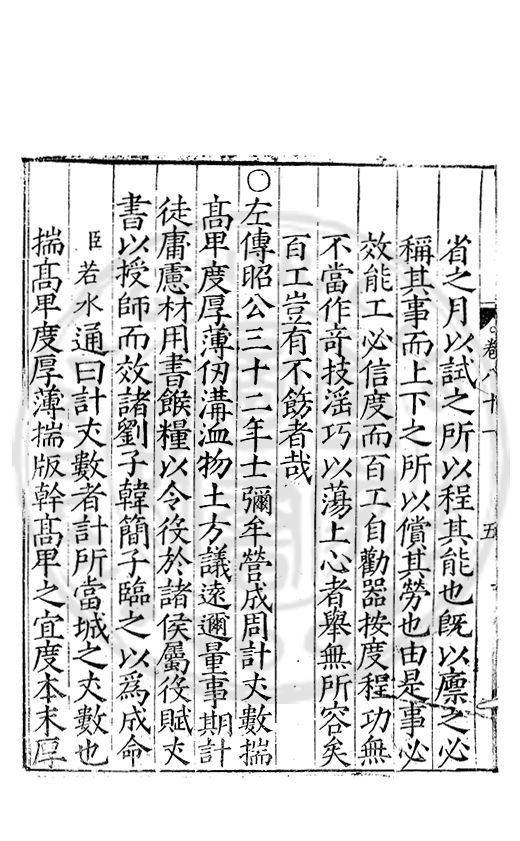 卷八十一
五
省之月以試之所以程其能也旣以廩之必
稱其事而上下之所以償其勞也由是事必
效能工必信度而百工自勸器按度程功無
不當作竒技滛巧以蕩上心者舉無所容矣
百工豈有不飭者哉
○左傳昭公三十二年士彌牟營成周計𠀋數揣
髙卑度厚薄仞溝洫物土方議遠邇量事期計
徒庸慮材用書餱糧以令役於諸侯屬役賦𠀋
書以授師而效諸劉子韓簡子臨之以爲成命
臣若水通曰計𠀋數者計所當城之𠀋數也
揣髙卑度厚薄揣版幹髙卑之宜度本末厚